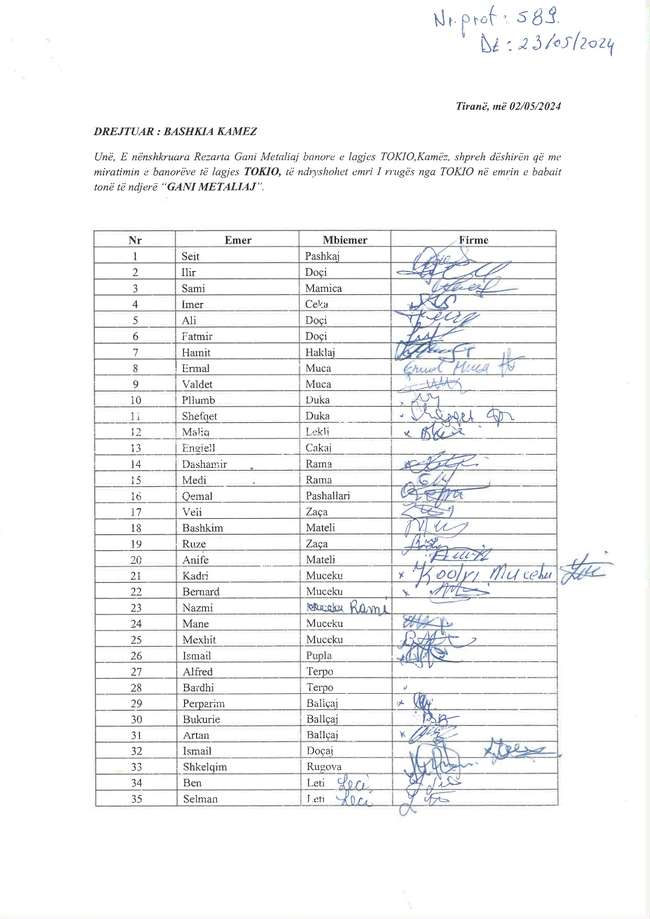 Nr. prot : 589.
Dt : 23/05/2024
Tiranë, më 02/05/2024
DREJTUAR : BASHKIA KAMEZ
Unë, E nënshkruara Rezarta Gani Metaliaj banore e lagjes TOKIO,Kamëz, shpreh dëshirën që me
miratimin e banorëve të lagjes TOKIO, të ndryshohet emri I rrugës nga TOKIO në emrin e babait
tonë të ndjerë “GANI METALIAJ”.
Nr Emer Mbiemer Firme
1 Seit Pashkaj
2 Ilir Doçi
3 Sami Mamica
4 Imer Ceka
5 Ali Doçi
6 Fatmir Doçi
7 Hamit Haklaj
8 Ermal Muca Ermal Muca
9 Valdet Muca
10 Pllumb Duka
11 Shefqet Duka
12 Maliq Lekli
13 Engjell Cakaj
14 Dashamir Rama
15 Medi Rama
16 Qemal Pashallari
17 Veli Zaça
18 Bashkim Mateli
19 Ruze Zaça
20 Anife Mateli
21 Kadri Muceku x Kadri Muceku
22 Bernard Muceku x
23 Nazmi Muceku Rami
24 Mane Muceku
25 Mexhit Muceku
26 Ismail Pupla
27 Alfred Terpo
28 Bardhi Terpo
29 Perparim Ballçaj x
30 Bukurie Ballçaj
31 Artan Ballçaj x
32 Ismail Doçaj
33 Shkelqim Rugova
34 Ben Leti Leci
35 Selman Leti Leci